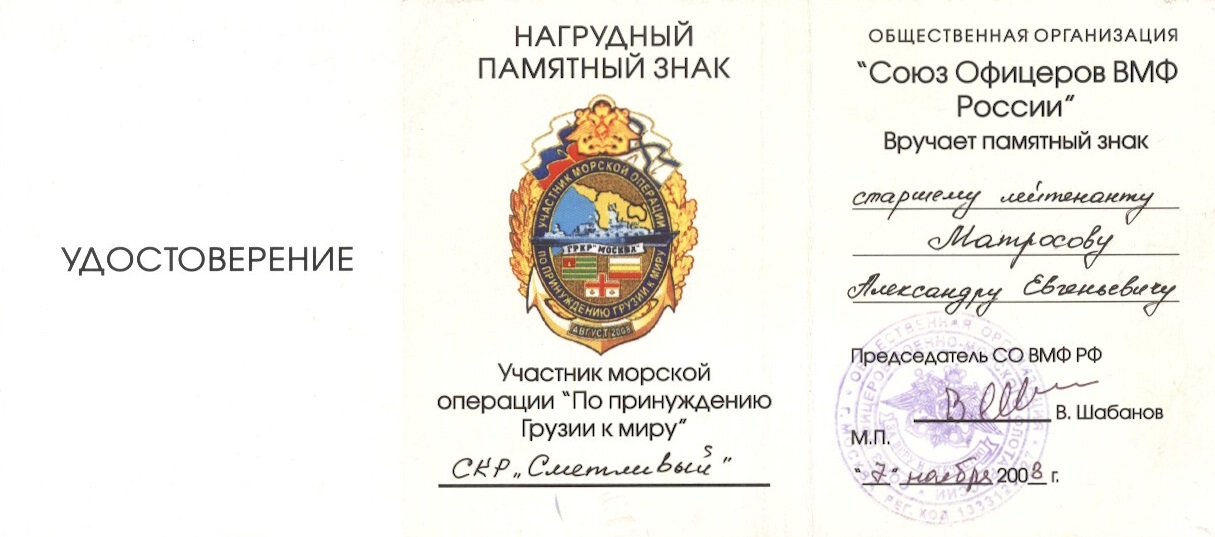 УДОСТОВЕРЕНИЕ
НАГРУДНЫЙ
ПАМЯТНЫЙ ЗНАК
УЧАСТНИК МОРСКОЙ ОПЕРАЦИИ
ГРКР "МОСКВА"
ПО ПРИНУЖДЕНИЮ ГРУЗИИ К МИРУ
АВГУСТ 2008
Участник морской
операции "По принуждению
Грузии к миру"
СКР „Сметливый"
ОБЩЕСТВЕННАЯ ОРГАНИЗАЦИЯ
"Союз Офицеров ВМФ
России"
Вручает памятный знак
старшему лейтенанту
Матросову
Александру Евгеньевичу
Председатель СО ВМФ РФ
В. Шабанов
М.П.
"7" ноября 2008 г.
ОБЩЕСТВЕННАЯ ОРГАНИЗАЦИЯ
РЕГ. КОД